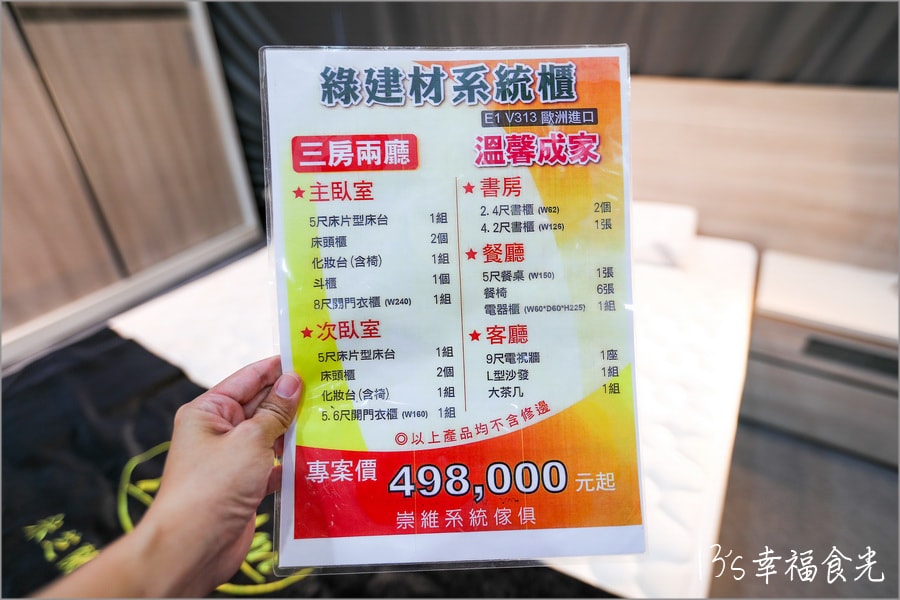 綠建材系統櫃
E1 V313 歐洲進口
三房兩廳
溫馨成家
★主臥室
5尺床片型床台 1組
床頭櫃 2個
化妝台(含椅) 1組
斗櫃 1個
8尺開門衣櫃 (W240) 1組
★次臥室
5尺床片型床台 1組
床頭櫃 2個
化妝台(含椅) 1組
5.6尺開門衣櫃 (W160) 1組
★書房
2.4尺書櫃 (W62) 2個
4.2尺書櫃 (W126) 1張
★餐廳
5尺餐桌 (W150) 1張
餐椅 6張
電器櫃 (W60*D60*H225) 1組
★客廳
9尺電視牆 1座
L型沙發 1組
大茶几 1組
◎以上產品均不含修邊
專案價 498,000 元起
崇維系統傢俱
13's幸福食光